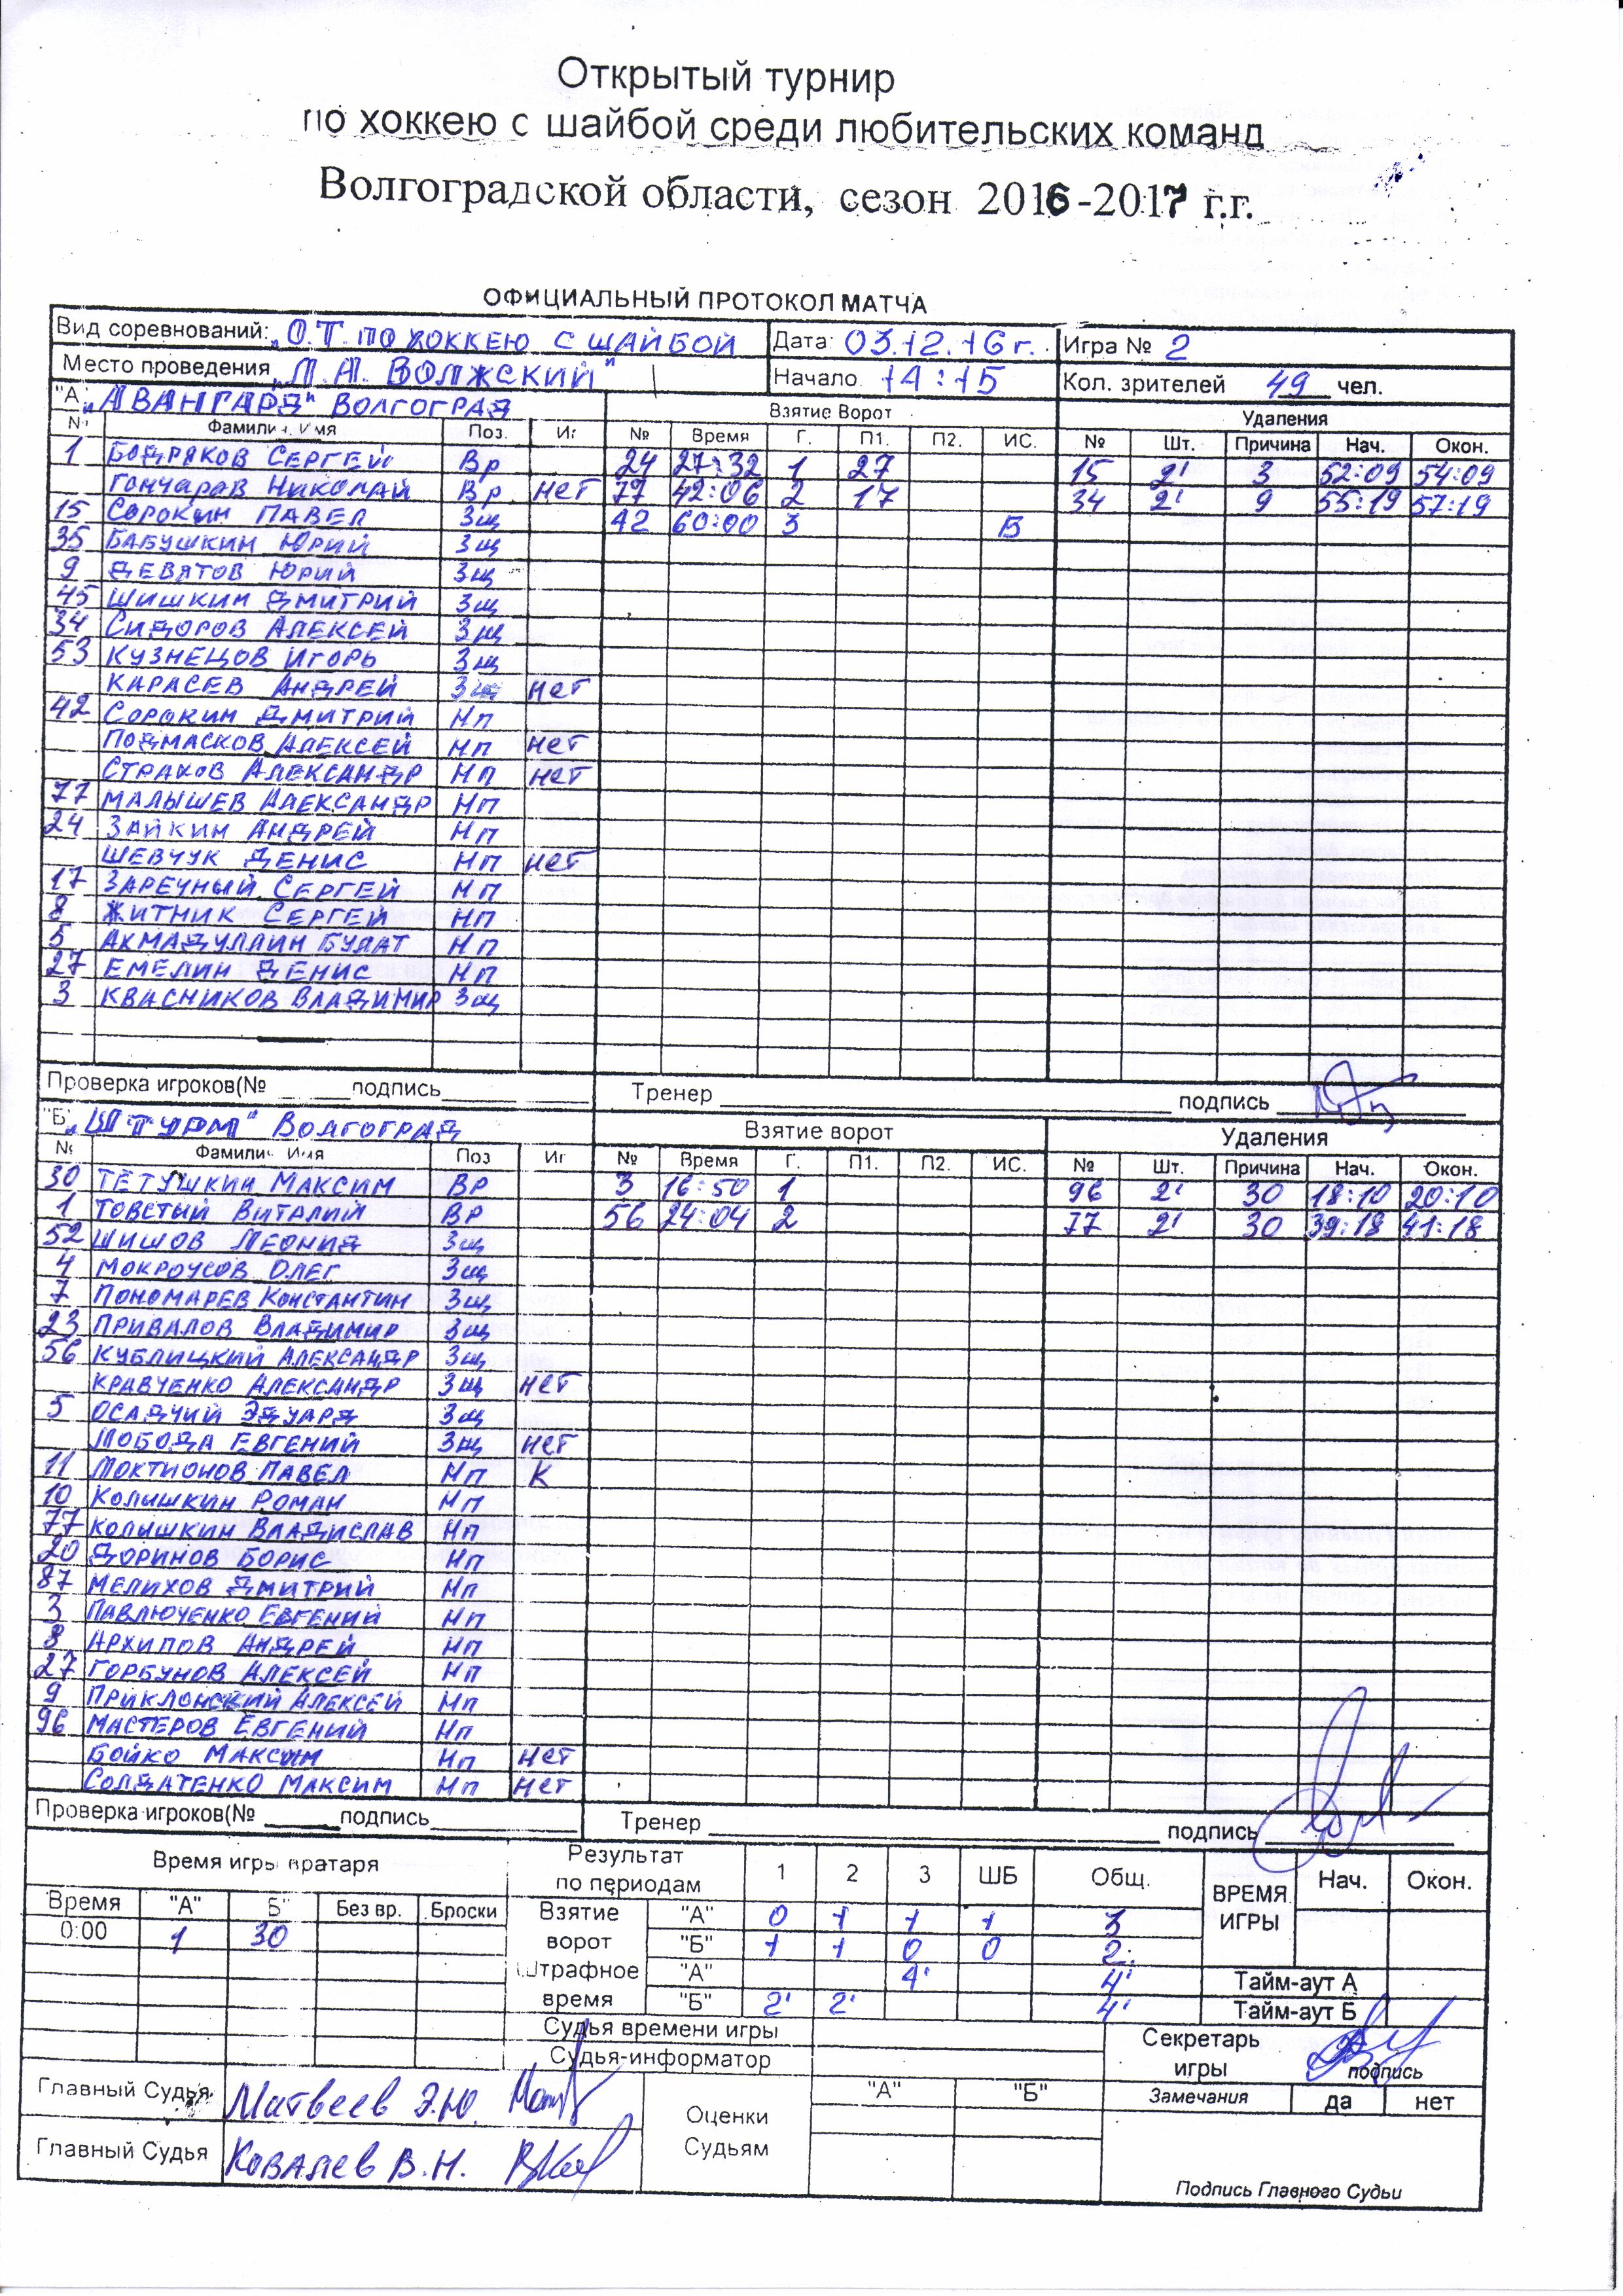 Открытый турнир
по хоккею с шайбой среди любительских команд
Волгоградской области, сезон 2016-2017 г.г.
ОФИЦИАЛЬНЫЙ ПРОТОКОЛ МАТЧА
Вид соревнований: "О.Т. ПО ХОККЕЮ С ШАЙБОЙ Дата: 03.12.16 г. Игра № 2
Место проведения "Л.А. ВОЛЖСКИЙ" Начало. 14:15 Кол. зрителей 49 чел.
"А" "АВАНГАРД" ВОЛГОГРАД Взятие Ворот Удаления
№ Фамилия, Имя Поз. Иг № Время Г. П1. П2. ИС. № Шт. Причина Нач. Окон.
1 БОДРЯКОВ СЕРГЕЙ Вр 24 27:32 1 27 15 2' 3 52:09 54:09
ГОНЧАРОВ НИКОЛАЙ Вр нет 77 42:06 2 17 34 2' 9 55:19 57:19
15 СОРОКИН ПАВЕЛ Зщ 42 60:00 3 Б
35 БАБУШКИН ЮРИЙ Зщ
9 ДЕВЯТОВ ЮРИЙ Зщ
45 ШИШКИН ДМИТРИЙ Зщ
34 СИДОРОВ АЛЕКСЕЙ Зщ
53 КУЗНЕЦОВ ИГОРЬ Зщ
КАРАСЕВ АНДРЕЙ Зщ нет
42 СОРОКИН ДМИТРИЙ Нп
ПОДМАСКОВ АЛЕКСЕЙ Нп нет
СТРАХОВ АЛЕКСАНДР Нп нет
77 МАЛЫШЕВ АЛЕКСАНДР Нп
24 ЗАЙКИН АНДРЕЙ Нп
ШЕВЧУК ДЕНИС Нп нет
17 ЗАРЕЧНЫЙ СЕРГЕЙ Нп
8 ЖИТНИК СЕРГЕЙ Нп
5 АХМАДУЛЛИН БУЛАТ Нп
27 ЕМЕЛИН ДЕНИС Нп
3 КВАСНИКОВ ВЛАДИМИР Зщ
Проверка игроков(№ подпись Тренер подпись
"Б" "ШТУРМ" ВОЛГОГРАД Взятие ворот Удаления
№ Фамилия, Имя Поз Иг № Время Г. П1. П2. ИС. № Шт. Причина Нач. Окон.
30 ТЕТУШКИН МАКСИМ ВР 3 16:50 1 96 2' 30 18:10 20:10
1 ТОВСТЫЙ ВИТАЛИЙ ВР 56 24:04 2 77 2' 30 39:18 41:18
52 ШИШОВ ЛЕОНИД Зщ
4 МОКРОУСОВ ОЛЕГ Зщ
7 ПОНОМАРЕВ КОНСТАНТИН Зщ
23 ПРИВАЛОВ ВЛАДИМИР Зщ
56 КУБЛИЦКИЙ АЛЕКСАНДР Зщ
КРАВЧЕНКО АЛЕКСАНДР Зщ нет
5 ОСАДЧИЙ ЭДУАРД Зщ
ЛОБОДА ЕВГЕНИЙ Зщ нет
11 ЛОКТИОНОВ ПАВЕЛ Нп К
10 КОЛЫШКИН РОМАН Нп
77 КОЛЫШКИН ВЛАДИСЛАВ Нп
20 ДОРИНОВ БОРИС Нп
87 МЕЛИХОВ ДМИТРИЙ Нп
3 ПАВЛЮЧЕНКО ЕВГЕНИЙ Нп
8 АРХИПОВ АНДРЕЙ Нп
27 ГОРБУНОВ АЛЕКСЕЙ Нп
9 ПРИКЛОНСКИЙ АЛЕКСЕЙ Нп
96 МАСТЕРОВ ЕВГЕНИЙ Нп
БОЙКО МАКСИМ Нп нет
СОЛДАТЕНКО МАКСИМ Нп нет
Проверка игроков(№ подпись Тренер подпись
Время игры вратаря Результат по периодам 1 2 3 ШБ Общ. ВРЕМЯ ИГРЫ Нач. Окон.
Время "А" Б" Без вр. Броски Взятие ворот "А" 0 1 1 1 3
0:00 1 30 "Б" 1 1 0 0 2
Штрафное время "А" 4' 4' Тайм-аут А
"Б" 2' 2' 4' Тайм-аут Б
Судья времени игры Секретарь игры подпись
Судья-информатор
Главный Судья Матвеев Э.Ю. Оценки Судьям "А" "Б" Замечания да нет
Главный Судья Ковалев В.Н.
Подпись Главного Судьи